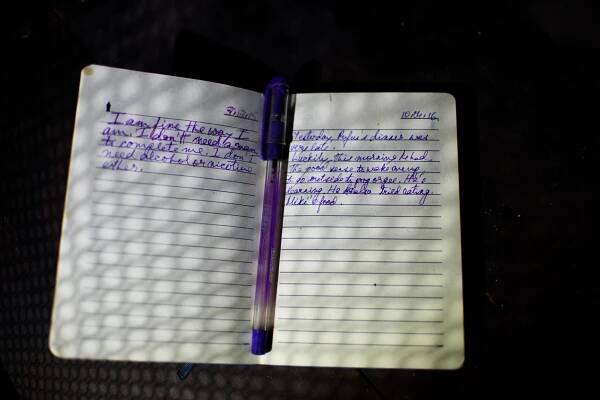 I am fine the way I
am. I don't need a man
to complete me. I don't
need alcohol or nicotine
either.
Yesterday Rufus's dinner was
very late.
Luckily, this morning he had
the good sense to wake me up
to go outside to
learning. He also tried eating
Mike's food.